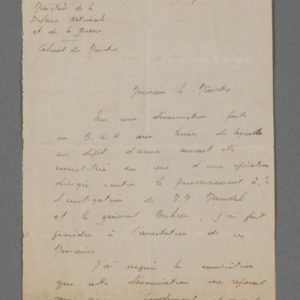 Direction de la
Défense Nationale
et de la guerre
Cabinet du Ministre
Monsieur le Ministre
Sur une dénonciation faite
au aux termes de laquelle
un dépôt d'armes aurait été
constitué en vue d'une opération
dirigée contre le Gouvernement à
l'instigation de Mandel
et le général Buhrer, j'ai fait
procéder à l'arrestation de ces
Messieurs
J'ai acquis la conviction
que cette dénonciation ne reposait